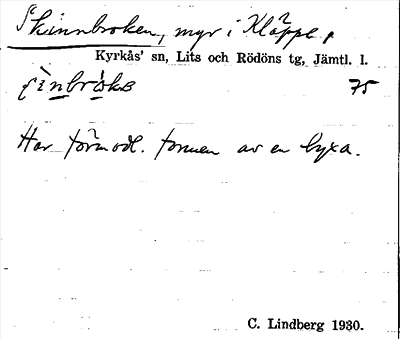 Skinnbroken, myr i Kläppe,
Kyrkås' sn, Lits och Rödöns tg, Jämtl. l.
75
Har förmodl. formen av en byxa.
C. Lindberg 1930.